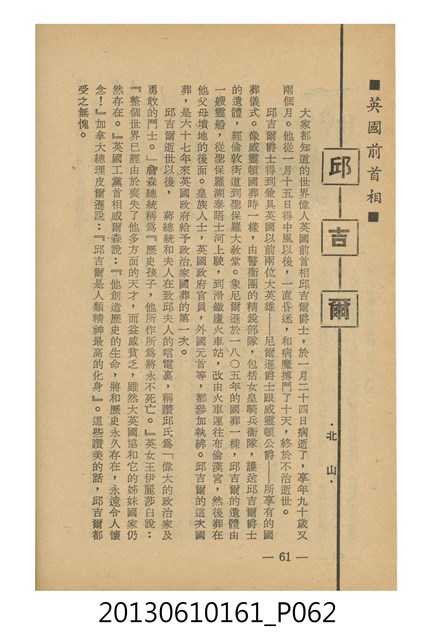 ■英國前首相■
邱吉爾
·北山·
大家都知道的世界偉人英國前首相邱吉爾爵士,於一月二十四日病逝了,享年九十歲又
兩個月。他從一月十五日得中風以後,一直昏迷,和病魔搏鬥了十天,終於不治逝世。
邱吉爾爵士得到兼具英國以前兩位大英雄——尼爾遜爵士跟威靈頓公爵——所享有的國
葬儀式。像威靈頓國葬時一樣,由警衞團的精銳部隊,包括女皇騎兵衞隊,護送邱吉爾爵士
的遺體,經倫敦街道到聖保羅大教堂。象尼爾遜於一八〇五年的國葬一樣,邱吉爾的遺體由
一艘靈船,從聖保羅溯泰晤士河上駛,到滑鐵廬火車站,改由火車運往布倫漢宮,然後葬在
他父母墳地的後面。皇族人士,英國政府官員,外國元首等,都參加執紼。邱吉爾的這次國
葬,是六十七年來英國政府給予政治家國葬的第一次。
邱吉爾逝世以後,蔣總統和夫人在致邱夫人的唁電裏,稱讚邱氏爲「偉大的政治家及
勇敢的鬥士。」詹森總統稱爲『歷史孩子,他所作所爲將永不死亡。』英女王伊麗莎白說:
『整個世界已經由於喪失了他多方面的天才,而益感貧乏,雖然大英國協和它的姊妹國家仍
然存在。』英國工黨首相威爾森說:『他創造歷史的生命,將和歷史永久存在,永遠令人懷
念!』加拿大總理皮爾遜說:『邱吉爾是人類精神最高的化身』。這些讚美的話,邱吉爾都
受之無愧。
— 61 —
20130610161_P062